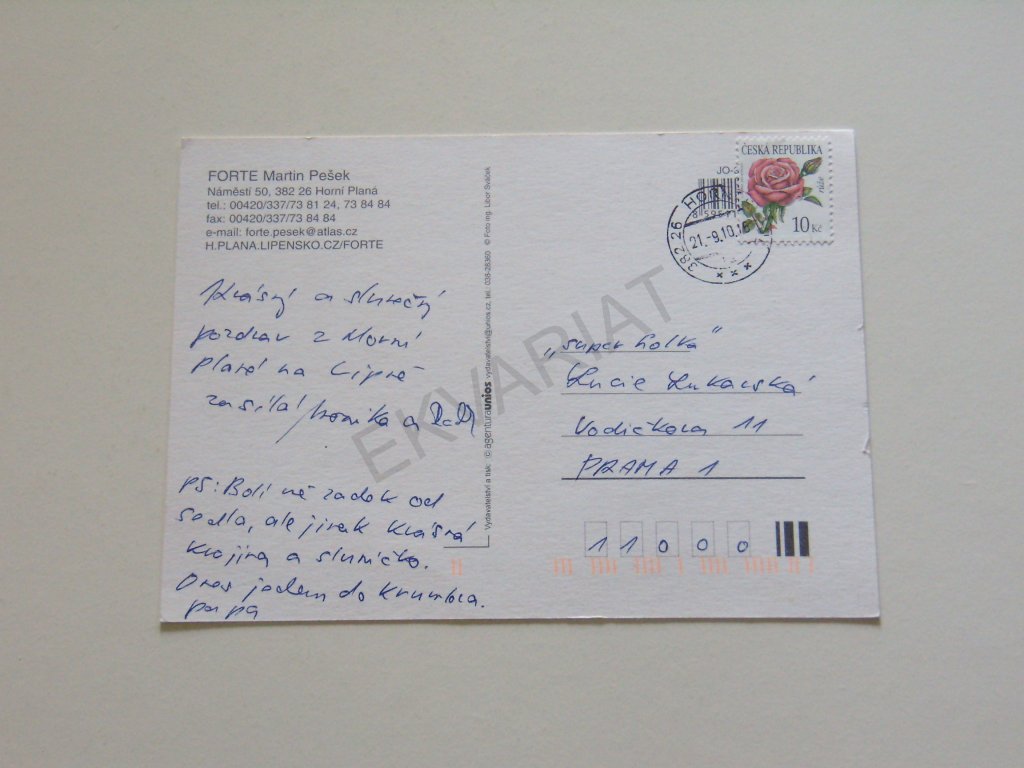 FORTE Martin Pešek
Náměstí 50, 382 26 Horní Planá
tel.: 00420/337/73 81 24, 73 84 84
fax: 00420/337/73 84 84
e-mail: forte.pesek@atlas.cz
H.PLANA.LIPENSKO.CZ/FORTE
Krásný a slunečný
pozdrav z Horní
Plané na Lipně
zasílá a
PS: Bolí mě zadek od
sedla, ale jinak krásná
krajina a sluníčko.
Dnes jedem do Krumlova.
pa pa
Vydavatelství a tisk: © agenturaunios vydavatelstvi@unios.cz, tel.: 038-28360 © Foto ing. Libor Sváček
JO-
ČESKÁ REPUBLIKA
růže
10 Kč
382 26 HORN
21.-9.10.18
„super holka"
Lucie Lukavská
Vodičkova 11
PRAHA 1
11000
EKVARIAT